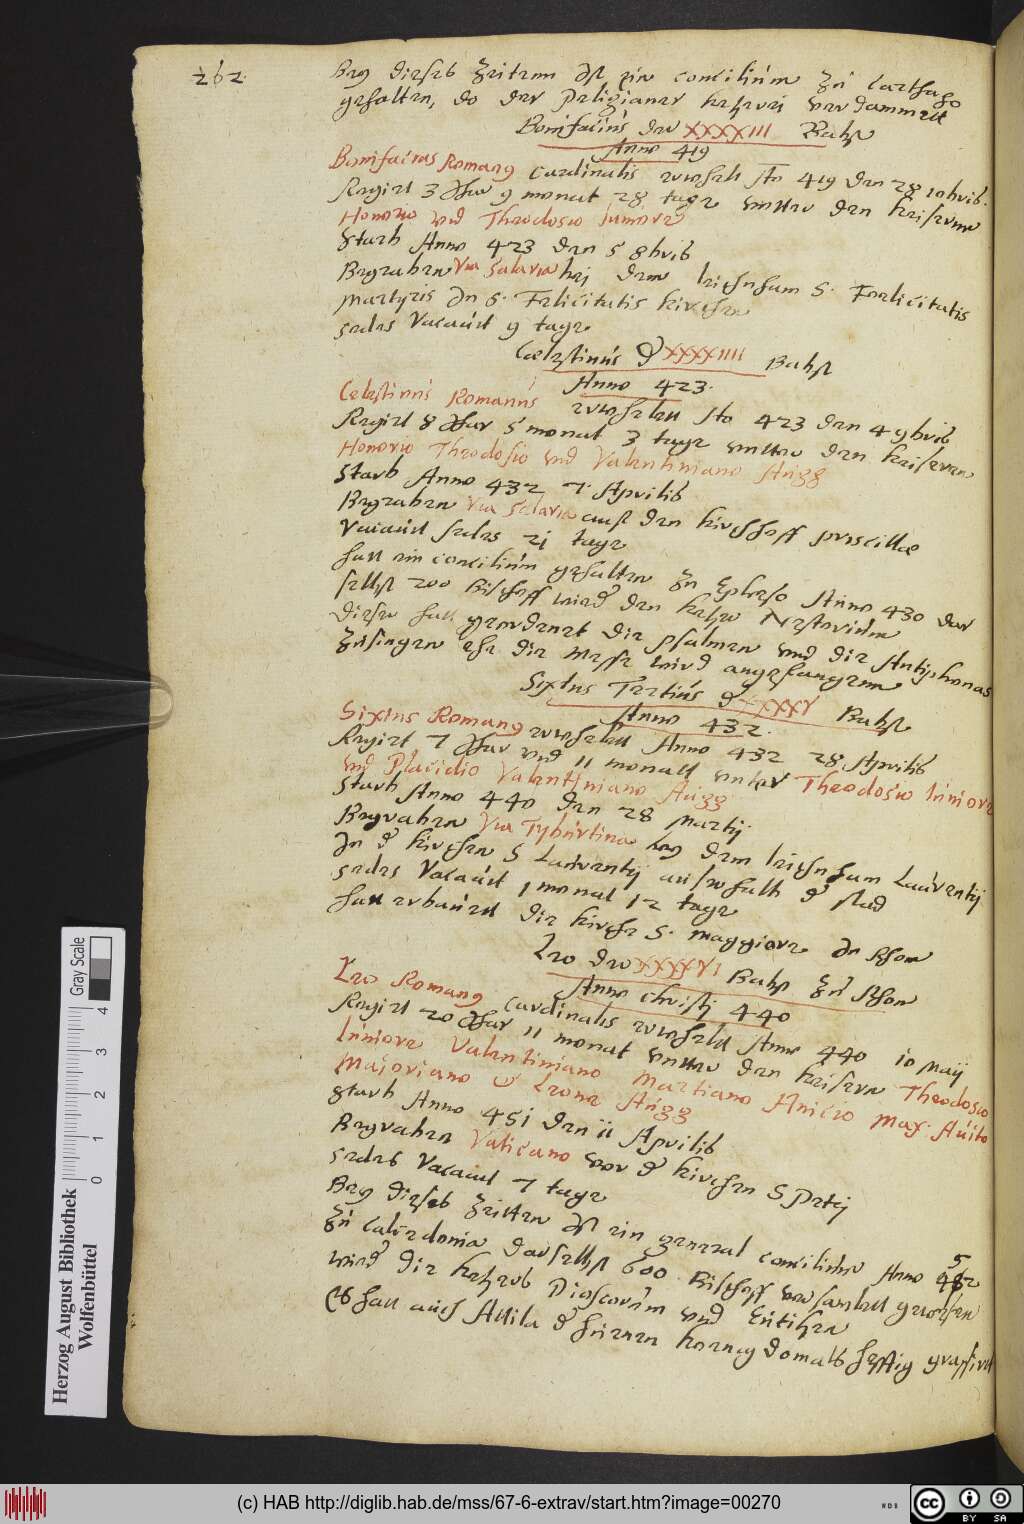 262.
Bey dieses Zeitenn Ist ein concilium zu Carthago
gehalten, do der Peligianer ketzerei verdammett
Bonifacius der XXXXIII Babst
Anno 419
Bonifacius Romang Cardinalis erwehlett Ao 419 den 28 10bris.
Regirt 3 Jhar 9 monat 28 tage untter den keiserenn
Honorio und Theodosio Iuniore
Starb Anno 423 den 5 8bris
Begraben Via Salaria bei dem leichnham S. Foelicitatis
Martyris In S. Felicitatis kirchen
sedes Vacauit 9 tage
Cælestinus d XXXXIIII Babst
Anno 423.
Celestinus Romanus erwehlett Ao 423 den 4 9bris
Regirt 8 Jhar 5 monat 3 tage untter den keiseren
Honorio Theodosio und Valentiniano Augg
Starb Anno 432 7. Aprilis
Begraben Via Salaria auff den kirchhoff priscillæ
Vacauit sedes 21 tage
hatt ein concilium gehaltten zu Epheso Anno 430 dar
selbst 200 Bischoff wird den ketzer Nestorium
Dieser hatt geordenet die psalmen und die Antiphonas
zusingen ehe die Messe wird angefangenn
Sixtus Tertius d XXXXV Babst
Anno 432.
Sixtus Romang erwehlett Anno 432 28 Aprilis
Regirt 7 Jhar und 11 monatt untter Theodosio Iuniore
und Placidio Valentiniano Augg
Starb Anno 440 den 28 Martij
Begraben Via Tyburtina bey dem leichnham Laurentij
In d kirchen S Laurentij ausserhalb d stad
sedes Vacauit 1 monat 12 tage
hatt erbauett die kirche S. maggiore In Rhom
Leo der XXXXVI Babst zu Rhom
Anno Christj 440
Leo Romang Cardinalis erwehlett Anno 440 10 Maij
Regirt 20 Jhar 11 monat untter den keisern Theodosio
Iuniore Valentiniano Martiano Anicio Max. Auito
Majoriano u Leone Augg
Starb Anno 451 den 11 Aprilis
Begraben Vaticano vor d kirchen S Petrj
sedes Vacauit 7 tage
Bey dieses Zeitten Ist ein general concilium Anno 452
5
zu Calcedonia daselbst 600 Bischoff versamlett gewesen
wird die ketzerb Dioscorum und Eutihen
Es hatt auch Attila d hunen koenig domals hefftig grassirt
Gray Scale
4 3 2 1 0
Herzog August Bibliothek
Wolfenbüttel
(c) HAB http://diglib.hab.de/mss/67-6-extrav/start.htm?image=00270
WDB
CC BY SA